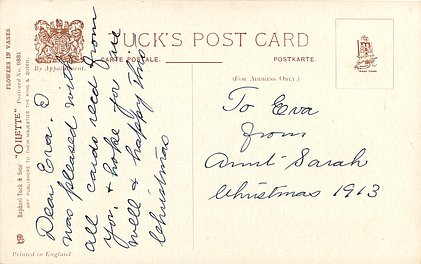 FLOWERS IN VASES.
Raphael Tuck & Sons' "OILETTE" Postcard No. 9881
ART PUBLISHERS TO THEIR MAJESTIES THE KING & QUEEN.
Printed in England.
By Appointment.
TUCK'S POST CARD
CARTE POSTALE.
POSTKARTE.
(FOR ADDRESS ONLY.)
TRADE MARK
Dear Eva. I
was pleased with
all cards recd from
you, & hope for you
well & happy this
Christmas
To Eva
from
Aunt Sarah
Christmas 1913